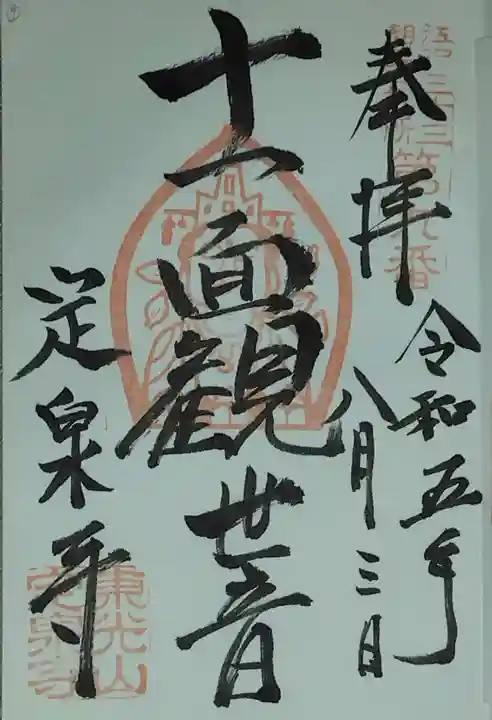 奉拝
令和五年
八月三日
十一面観世音
定泉寺
東光山
定泉寺